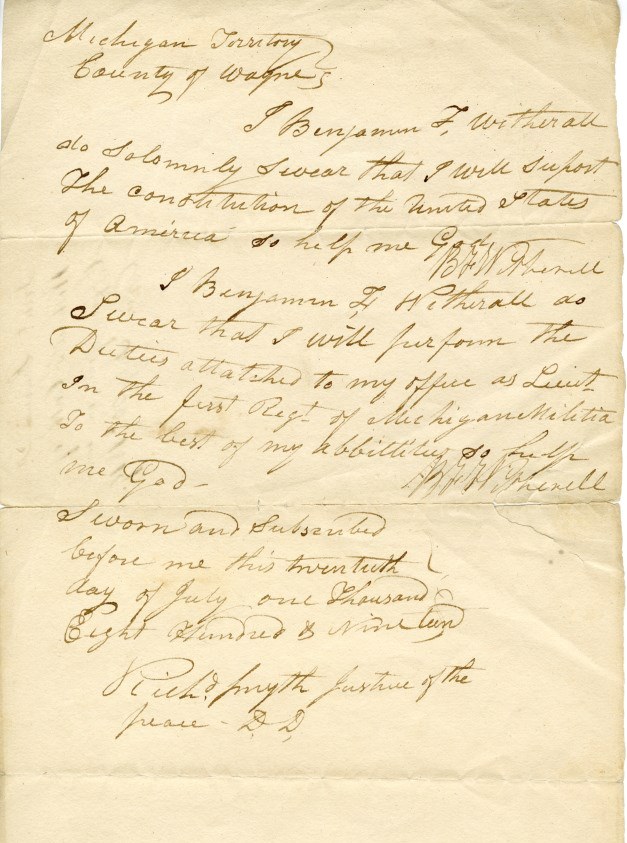 Michigan Territory
County of Wayne } s.
I Benjamin F, Witherall
do Solomnly Swear that I will Suport
The constitution of the United States
of America so help me God
B F Witherell
I Benjamin F, Witherall do
Swear that I will perform the
Dieties attatched to my office as Lieut
In the first Regt- of Michigan Militia
To the best of my abbillities so help
me God -
B F Witherell
Sworn and Subscribed
before me this twentieth
day of July one Thousand
Eight Hundred & Nineteen
Richd. Smyth Justice of the
peace - D. D,